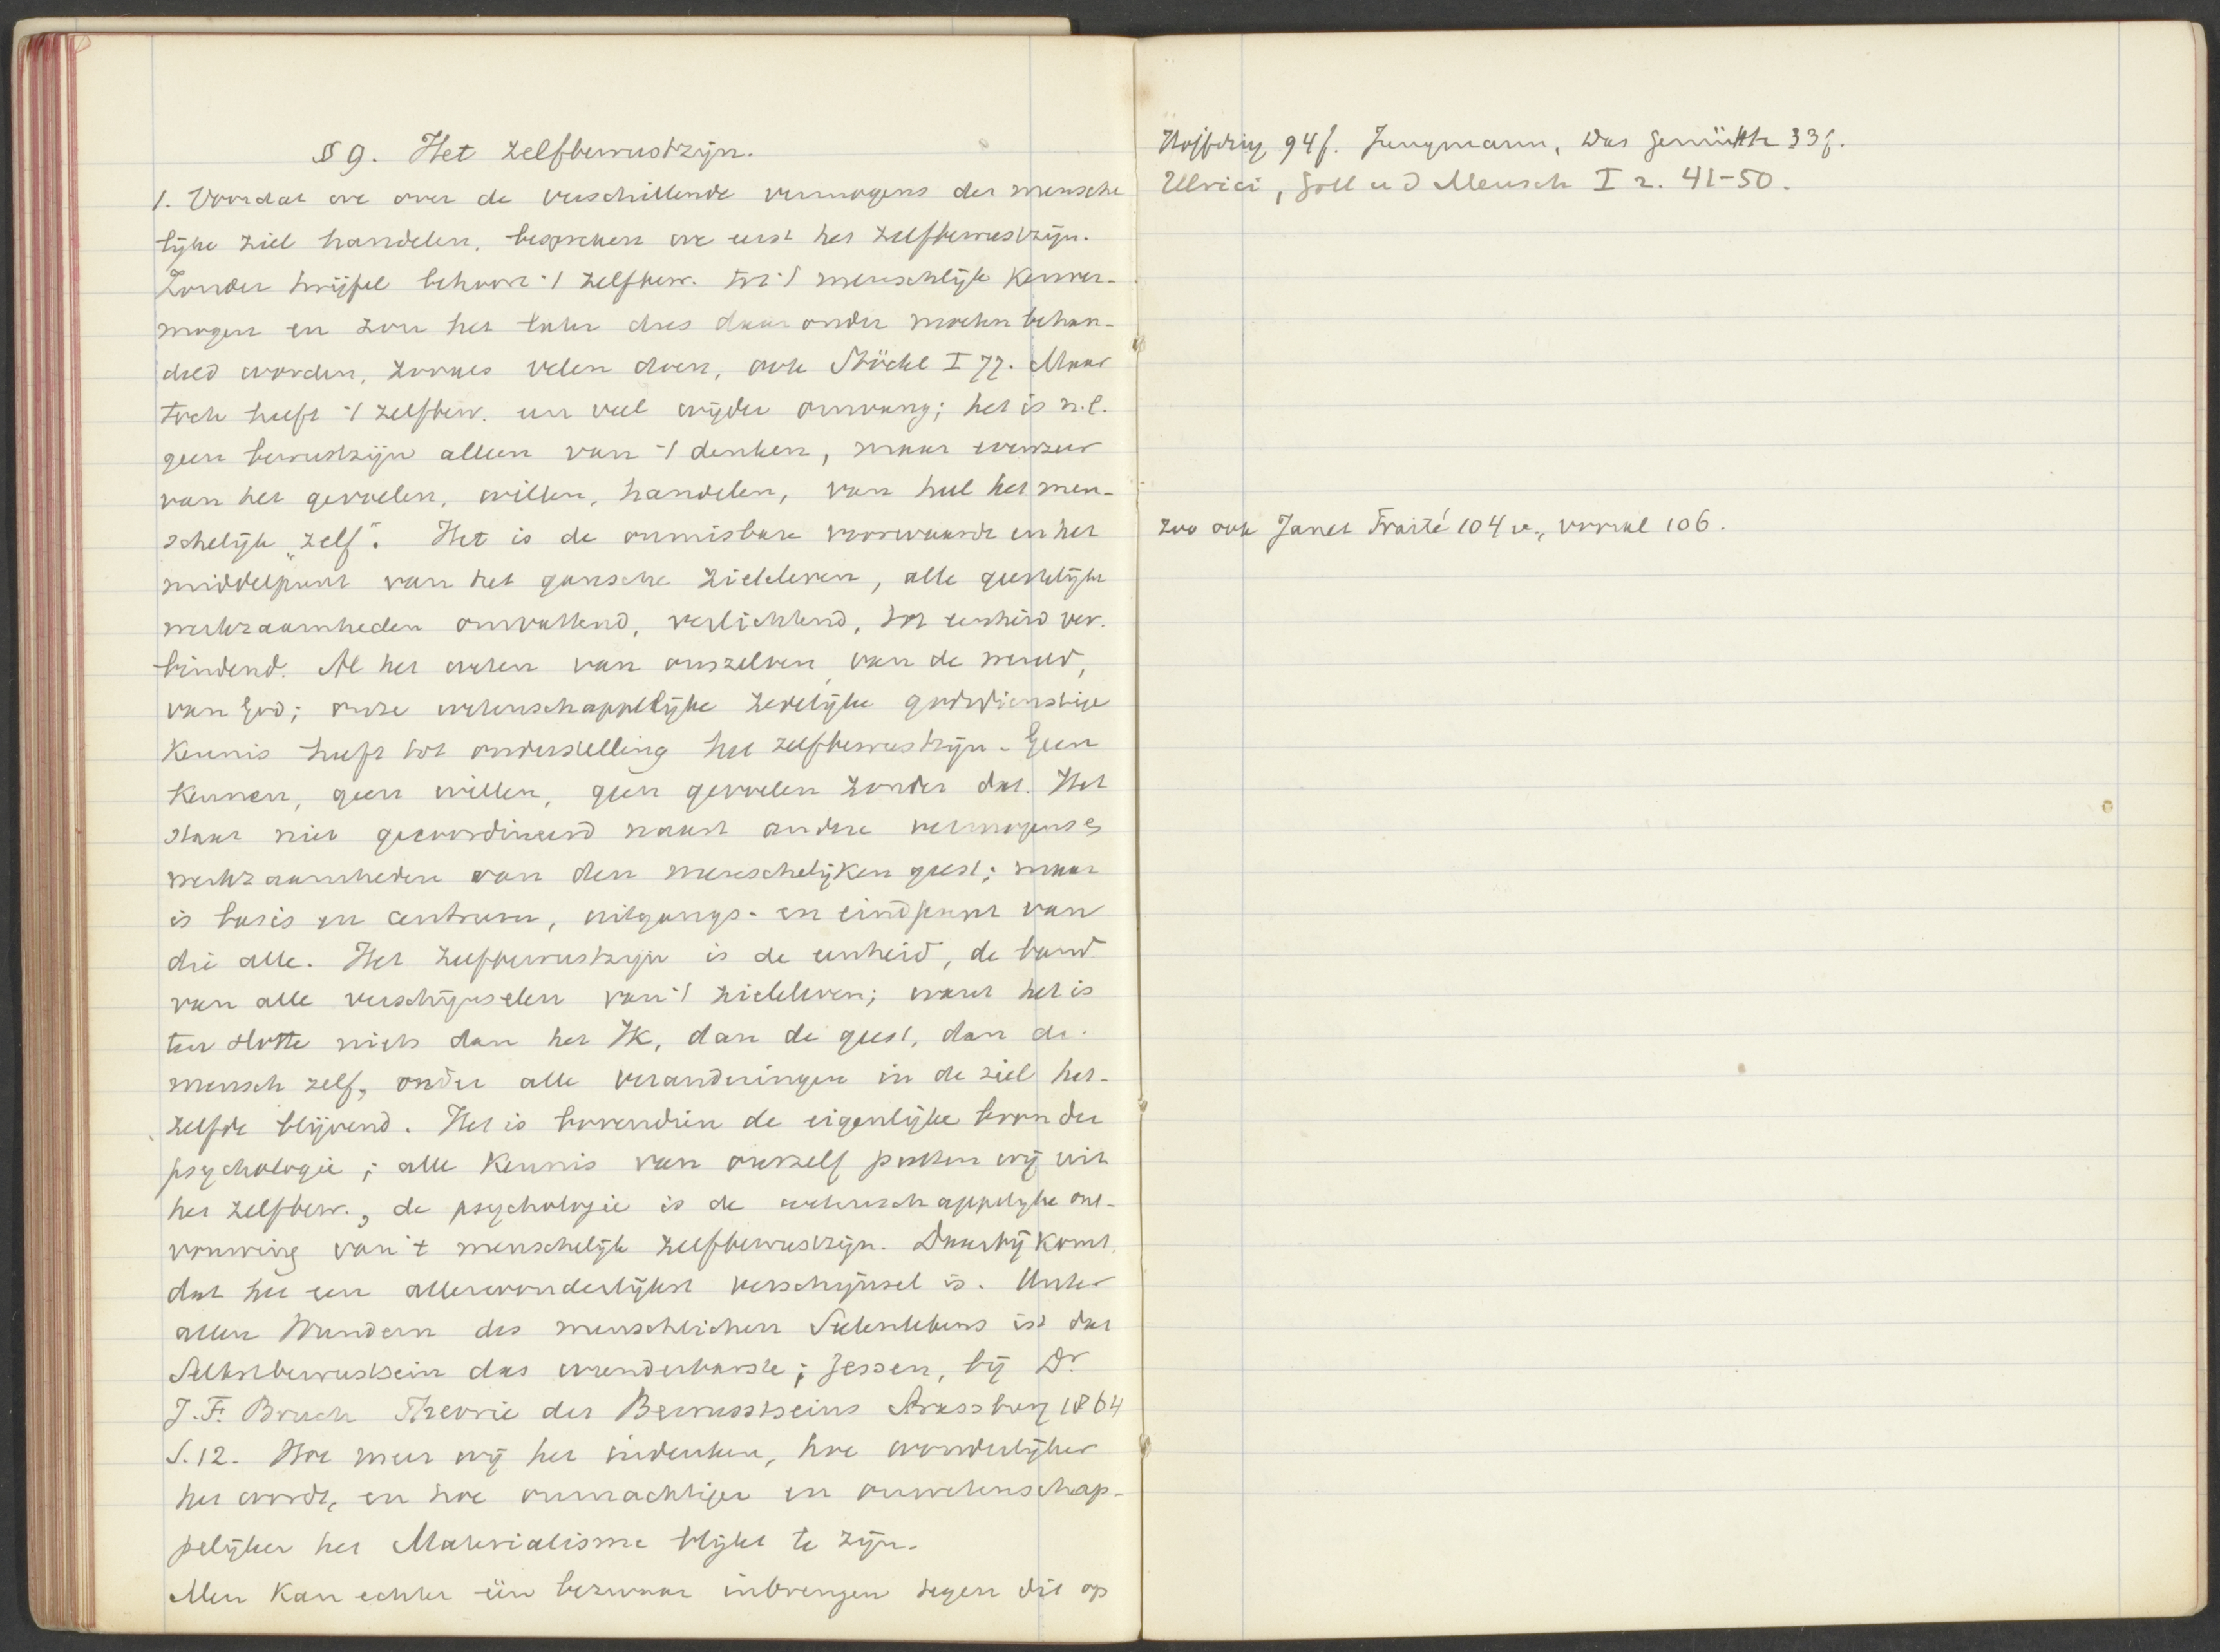 § 9. Het zelfbewustzijn.
1. Voordat we over de verschillende vermogens der mensche
lijke ziel handelen, bespreken we eerst het zelfbewustzijn.
Zonder twijfel behoort 't zelfbew. tot 't menschlijk kenver-
mogen en zou het later dus daaronder moeten behan-
deld worden, zooals velen doen, ook Stöckl I 77. Maar
toch heeft 't zelfbew. een veel wijder omvang; het is n.l.
geen bewustzijn alleen van 't denken, maar evenzeer
van het gevoelen, willen, handelen, van heel het men-
schelijk „zelf". Het is de onmisbare voorwaarde en het
middelpunt van het gansche zieleleven, alle geestelijke
werkzaamheden omvattend, verlichtend, tot eenheid ver-
bindend. Al het weten van onszelven, van de wereld,
van God; onze wetenschappelijke zedelijke godsdienstige
kennis heeft tot onderstelling het zelfbewustzijn. Geen
kennen, geen willen, geen gevoelen zonder dat. Het
staat niet gecoordineerd naast andere vermogens en
werkzaamheden van den menschelijken geest; maar
is basis en centrum, uitgangs- en eindpunt van
die alle. Het zelfbewustzijn is de eenheid, de band
van alle verschijnselen van 't zieleleven; want het is
ten slotte niets dan het Ik, dan de geest, dan de
mensch zelf, onder alle veranderingen in de ziel het-
zelfde blijvend. Het is bovendien de eigenlijke bron der
psychologie; alle kennis van onszelf putten wij uit
het zelfbew., de psychologie is de wetenschappelijke ont-
vouwing van 't menschelijk zelfbewustzijn. Daarbij komt,
dat het een allerwonderlijkst verschijnsel is. Unter
allen Wundern des menschlichen Seelenlebens ist das
Selbstbewustsein das wunderbarste; Jessen, bij Dr.
J.F. Bruch Theorie des Bewusstseins Strassburg 1864
S.12. Hoe meer wij het indenken, hoe wonderlijker
het wordt, en hoe onmachtiger en onwetenschap-
pelijker het Materialisme blijkt te zijn.
Men kan echter één bezwaar inbrengen tegen dit op
Höffding 94f. Jungmann, Das Gemüth 33f.
Ulrici, Gott u d Mensch I 2. 41-50.
zoo ook Janet Traité 104 v., vooral 106.